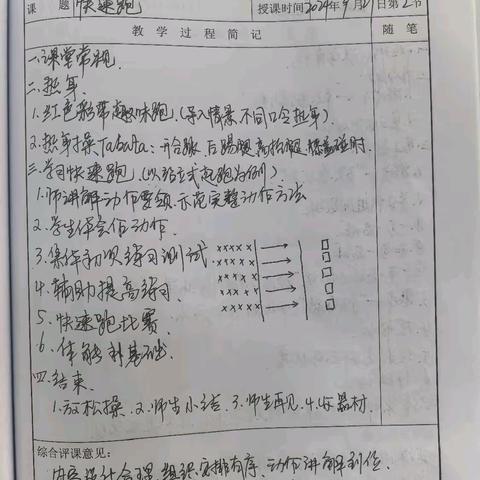 课 题 快速跑 授课时间2024年9月21日第2节
教 学 过 程 简 记 随 笔
一.课堂常规.
二.热身.
1.红色彩带趣味跑.(导入情景不同口令热身).
2.热身操Tabata:开合跳 后踢腿 高抬腿
三.学习快速跑(以站立式起跑为例)
1.师讲解动作要领.示范完整动作方法
2.学生体会作动作.
3.集体初次练习测试. xxxxx
4.辅助提高练习.
5.快速跑比赛.
6.体能补基础.
四.结束.
1.放松操.2.师生小结.3.师生再见.4.收器材.
综合评课意见:
内容设计合理,组织安排有序.动作讲解到位.